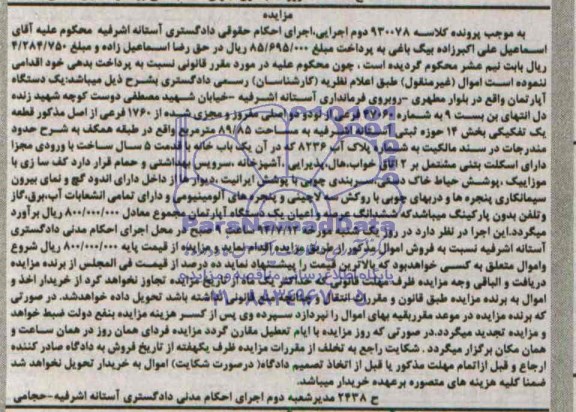 مزایده
به موجب پرونده کلاسه ۹۳۰۰۷۸ دوم اجرایی،اجرای احکام حقوقی دادگستری آستانه اشرفیه محکوم علیه آقای
اسماعیل علی اکبرزاده بیگ باغی به پرداخت مبلغ ۸۵/۶۹۵/۰۰۰ ریال در حق رضا اسماعیل زاده و مبلغ ۴/۲۸۴/۷۵۰
ریال بابت نیم عشر محکوم گردیده است . چون محکوم علیه در مورد مقرر قانونی نسبت به پرداخت بدهی خود اقدامی
ننموده است اموال (غیرمنقول) طبق اعلام نظریه (کارشناسان) رسمی دادگستری بشرح ذیل میباشد:یک دستگاه
آپارتمان واقع در بلوار مطهری -روبروی فرمانداری آستانه اشرفیه -خیابان شهید مصطفی دوست کوچه شهید زنده
دل انتهای بن بست ۹ به شماره فرعی از دو اصلی مفروز و مجزی شده از ۱۷۶۰ فرعی از اصل مذکور قطعه
یک تفکیکی بخش ۱۴ حوزه ثبتی آستانه اشرفیه به مساحت ۸۹/۸۵ مترمربع واقع در طبقه همکف به شرح حدود
مندرجات در سند مالکیت به شماره پلاک آب ۸۲۳۶ که در آن یک باب خانه با قدمت ۵ سال ساخت با ورودی مجزا
دارای اسکلت بتنی مشتمل بر ۲ اتاق خواب،هال،پذیرایی،آشپزخانه ،سرویس بهداشتی و حمام قرار دارد کف سا زی با
موزاییک ،پوشش حیاط خاک دستی،سربندی چوبی با پوشش ایرانیت ،دیوارها از داخل دارای اندود گچ و نمای بیرون
سیمانکاری پنجره ها و دربهای چوبی با روکش سه لاچینی و پنجره های آلومینیومی و دارای تمامی انشعابات آب،برق،گاز
وتلفن بدون پارکینگ میباشدکه ششدانگ عرصه و اعیان یک دستگاه آپارتمان مجموع معادل ۸۰۰/۰۰۰/۰۰۰ ریال برآورد
میگردد.این اجرا در نظر دارد در روز در محل اجرای احکام مدنی دادگستری
آستانه اشرفیه نسبت به فروش اموال مزبور از طریق مزایده اقدام نماید و مزایده از قیمت پایه ۸۰۰/۰۰۰/۰۰۰ ریال شروع
واموال متعلق به کسی خواهدبود که بالاترین قیمت را پیشنهاد نماید ده درصد از قیمت فی المجلس از برنده مزایده
دریافت و الباقی وجه مزایده ظرف مهلت قانونی که حداکثر یک ماه از تاریخ مزایده تجاوز نخواهد کرد از خریدار اخذ و
اموال به برنده مزایده طبق قانون و مقررات انتقال داشته باشد تحویل داده خواهدشد. در صورتی
که برنده مزایده در موعد مقرربقیه بهای اموال را نپردازد سپرده وی پس از کسر هزینه مزایده بنفع دولت ضبط خواهد
و مزایده تجدید میگردد.در صورتی که روز مزایده با ایام تعطیل مقارن گردد مزایده فردای همان روز در همان ساعت و
همان مکان برگزار میگردد . شکایت راجع به تخلف از مقررات مزایده ظرف یکهفته از تاریخ فروش به دادگاه صادر کننده
ارجاع و قبل ازاتمام مهلت مذکور یا قبل از اتخاذ تصمیم دادگاه(درصورت شکایت) اموال به خریدار تحویل نخواهد شد
ضمنا کلیه هزینه های متصوره برعهده خریدار میباشد.
ح ۲۴۳۸ مدیرشعبه دوم اجرای احکام مدنی دادگستری آستانه اشرفیه-حجامی